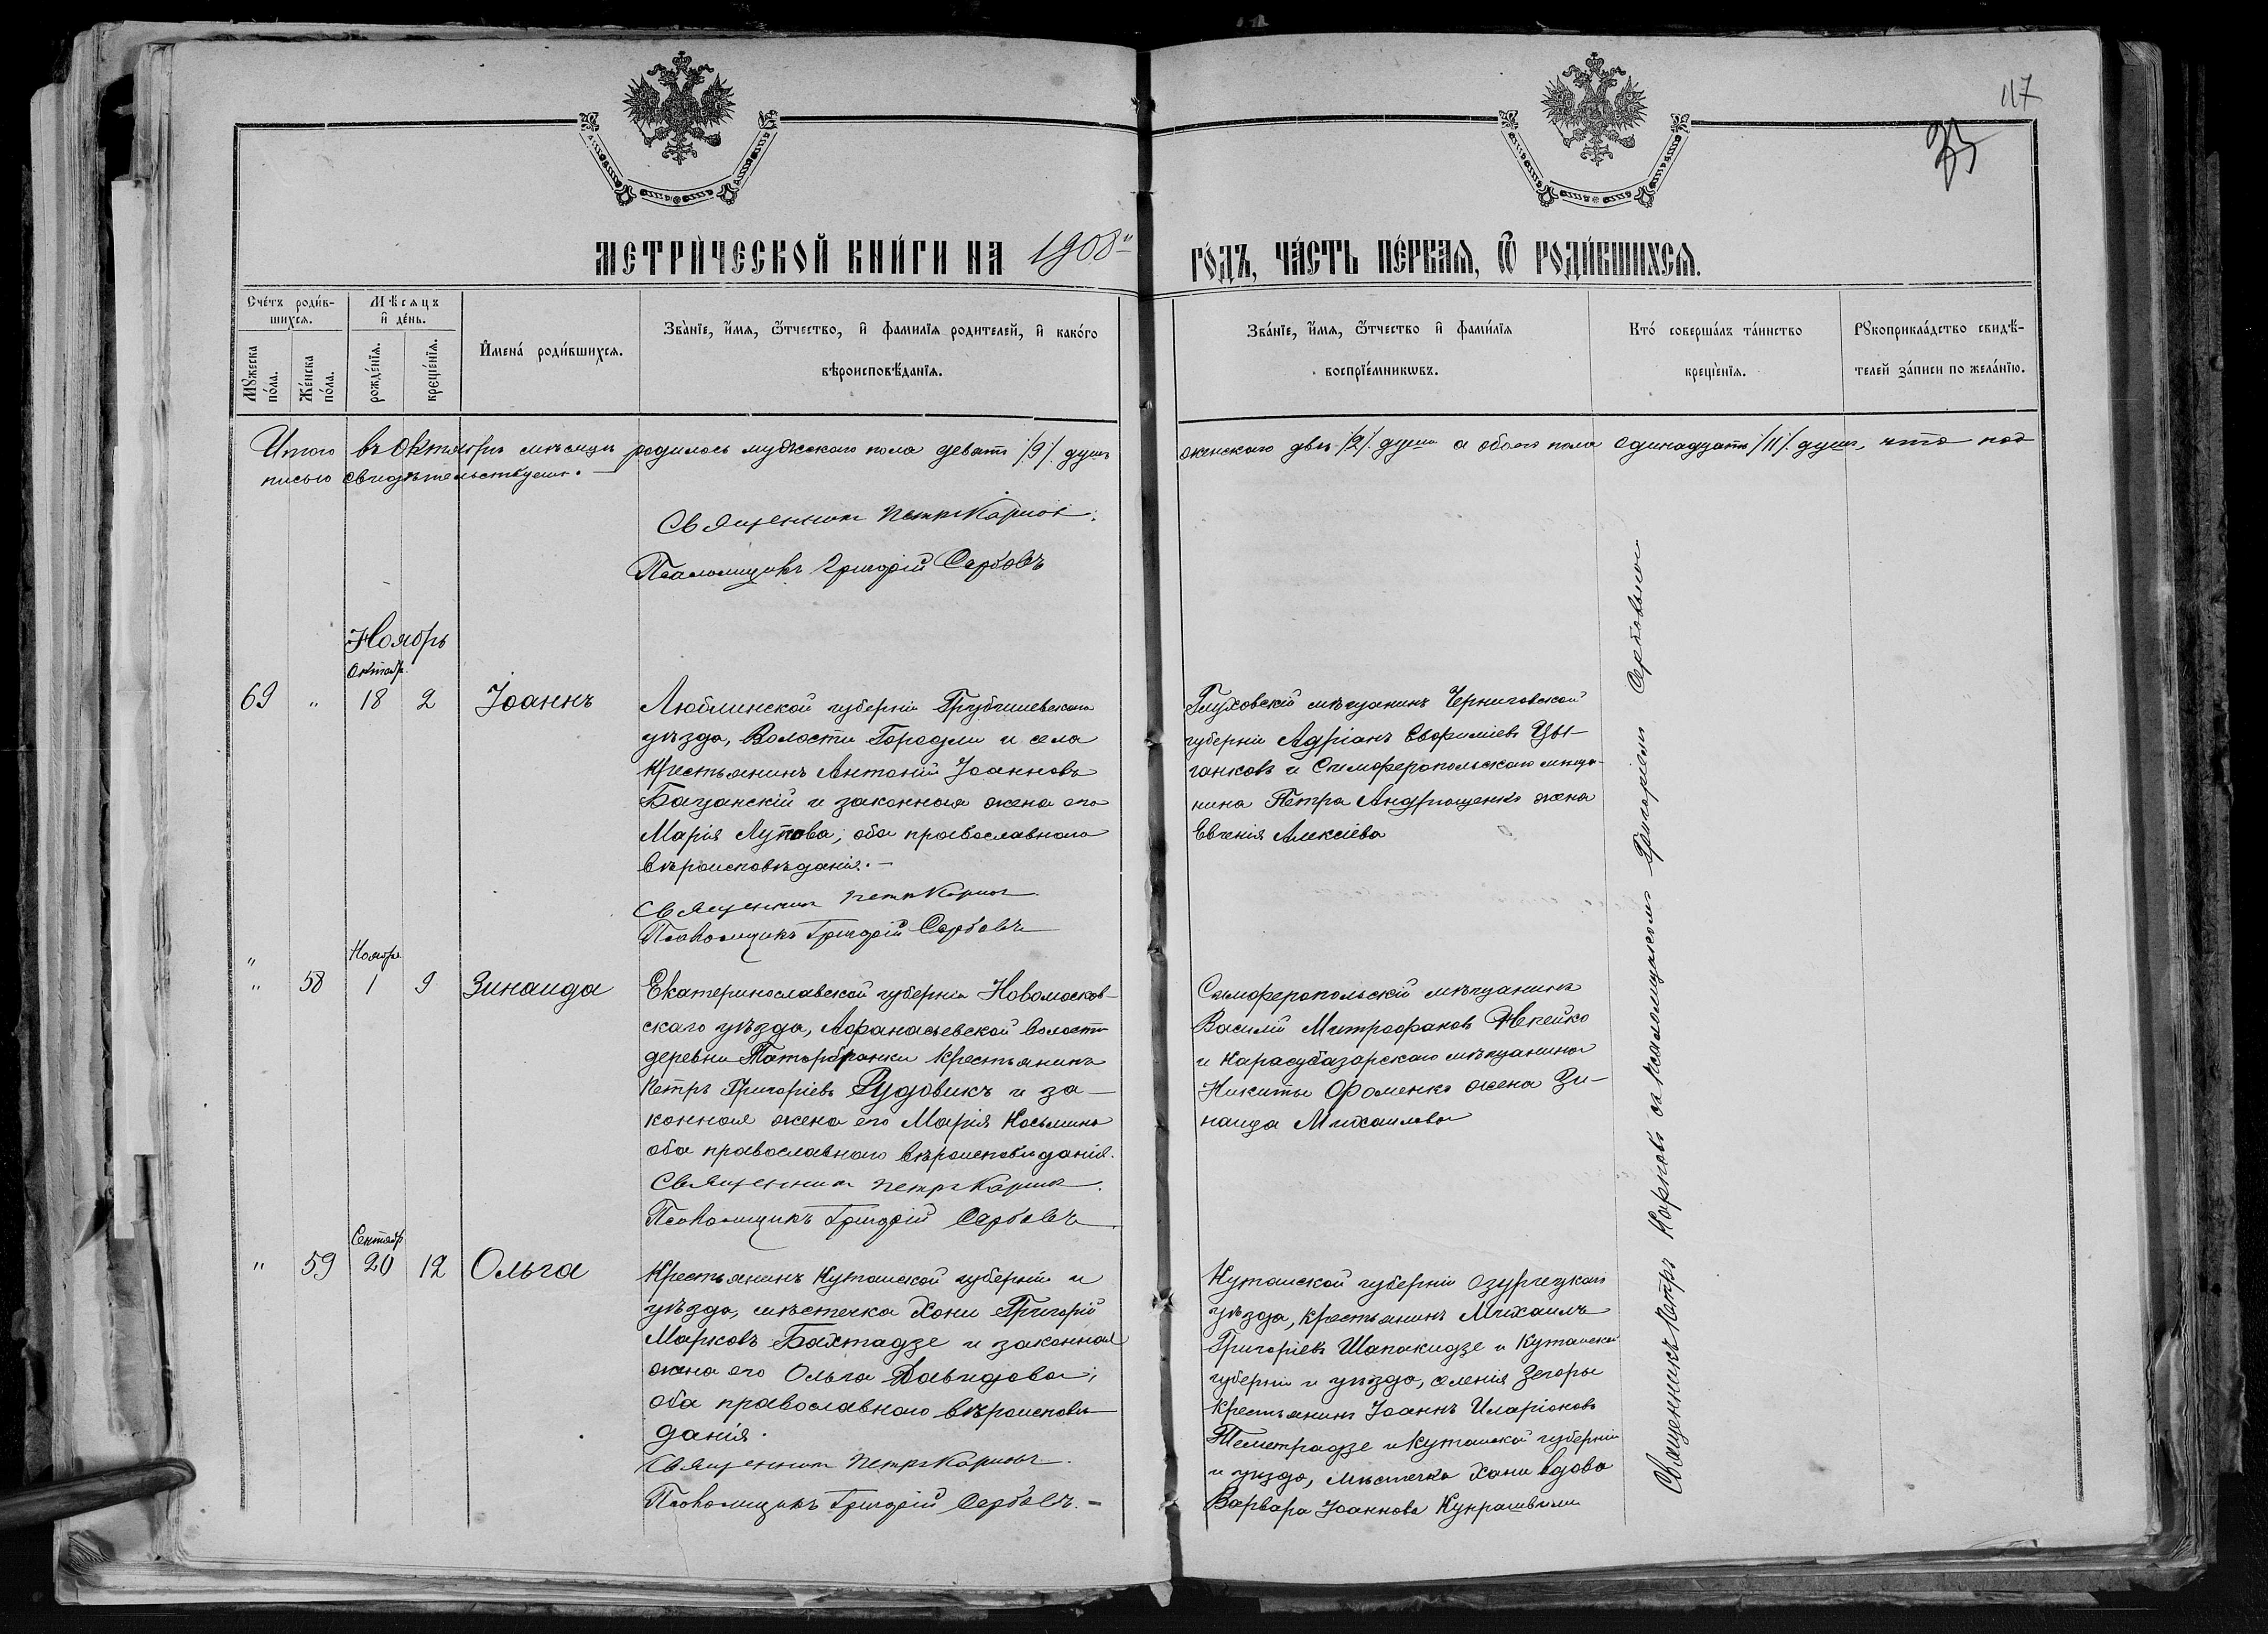 117
МЕТРИ́ЧЕСКОЙ КНИ́ГИ НА 1908й
ГО́ДЪ, ЧА́СТЬ ПЕ́РВАЯ, Ѿ РОДИ́ВШИХСЯ.
Сче́тъ роди́в-
шихся.
Мѣсяцъ
и де́нь.
Мꙋжеска
по́ла.
Же́нска
по́ла.
рожде́нїя.
креще́нїя.
Имена́ роди́вшихся.
Зва́нїе, имя, ѿтчество, и фамилїя родителей, и како́го
вѣроисповѣданїя.
Зва́нїе, имя, ѿтчество и фами́лїя
воспрїе́мникѡвъ.
Кто́ соверша́лъ та́инство
креще́нїя.
Рꙋкоприкла́дство свидѣ-
телей за́писи по жела́нїю.
Итого въ Октябрѣ мѣсяцѣ родилось мужскаго пола девять /9/ душъ
женскаго двѣ /2/ души а обоего пола одинадцать /11/ душъ, что под
писью свидѣтельствуемъ. —
Священникъ Петръ Карповъ.
Псаломщикъ Григорій Сербовъ
Ноябрь
Октябр.
69 " 18 2 Іоаннъ
Люблинской губерніи Грубешевскаго
уѣзда, Волости Городли и села
крестьянинъ Антоній Іоанновъ
Бащанскій и законная жена его
Марія Лупова; оба православнаго
вѣроисповѣданія. —
Священникъ Петръ Карповъ
Псаломщикъ Григорій Сербовъ
Глуховскій мѣщанинъ Черниговской
губерніи Адріанъ Евфиміевъ Цы-
ганковъ и Симферопольскаго мѣща-
нина Петра Андрющенко жена
Евгенія Алексіева
"
Ноябрь
" 58 1 9 Зинаида
Екатеринославской губерніи Новомосков-
скаго уѣзда, Афанасьевской волости
деревни крестьянинъ
Петръ Григоріевъ Рудовикъ и за-
конная жена его Марія Косьмина
оба православнаго вѣроисповѣданія.
Священникъ Петръ Карповъ.
Псаломщикъ Григорій Сербовъ
Симферопольскій мѣщанинъ
Василій Митрофановъ
и Карасубазарскаго мѣщанина
Никиты Фоменко жена Зи-
наида Михаилова
Сентябр
" 59 20 12 Ольга
Крестьянинъ Кутаиской губерніи и
уѣзда, мѣстечка Хони Григорій
Марковъ Бахтадзе и законная
жена его Ольга Давидова;
оба православнаго вѣроисповѣ
данія.
Священникъ Петръ Карповъ.
Псаломщикъ Григорій Сербовъ. —
Кутаиской губерніи Озургецкаго
уѣзда, крестьянинъ Михаилъ
Григоріевъ Шапакидзе и Кутаиской
губерніи и уѣзда, селенія Зегоры
крестьянинъ Іоаннъ Иларіоновъ
и Кутаиской губерніи
и уѣзда, мѣстечка Хони вдова
Варвара Іоаннова
Священникъ Петръ Карповъ съ псаломщикомъ Григоріемъ Сербовымъ